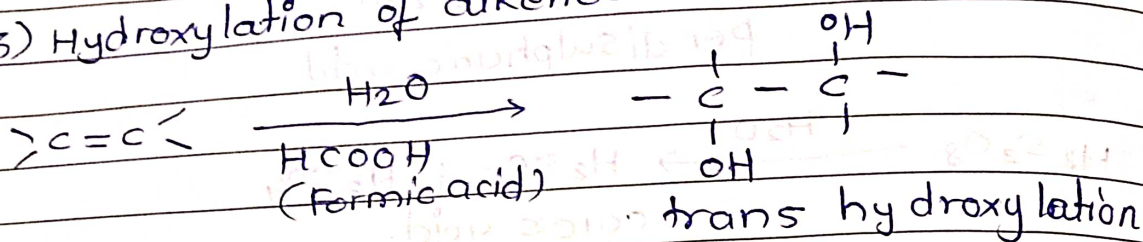 3) Hydroxylation of
OH
>C=C< H2O - C - C -
HCOOH OH
(Formic acid)
trans hydroxylation